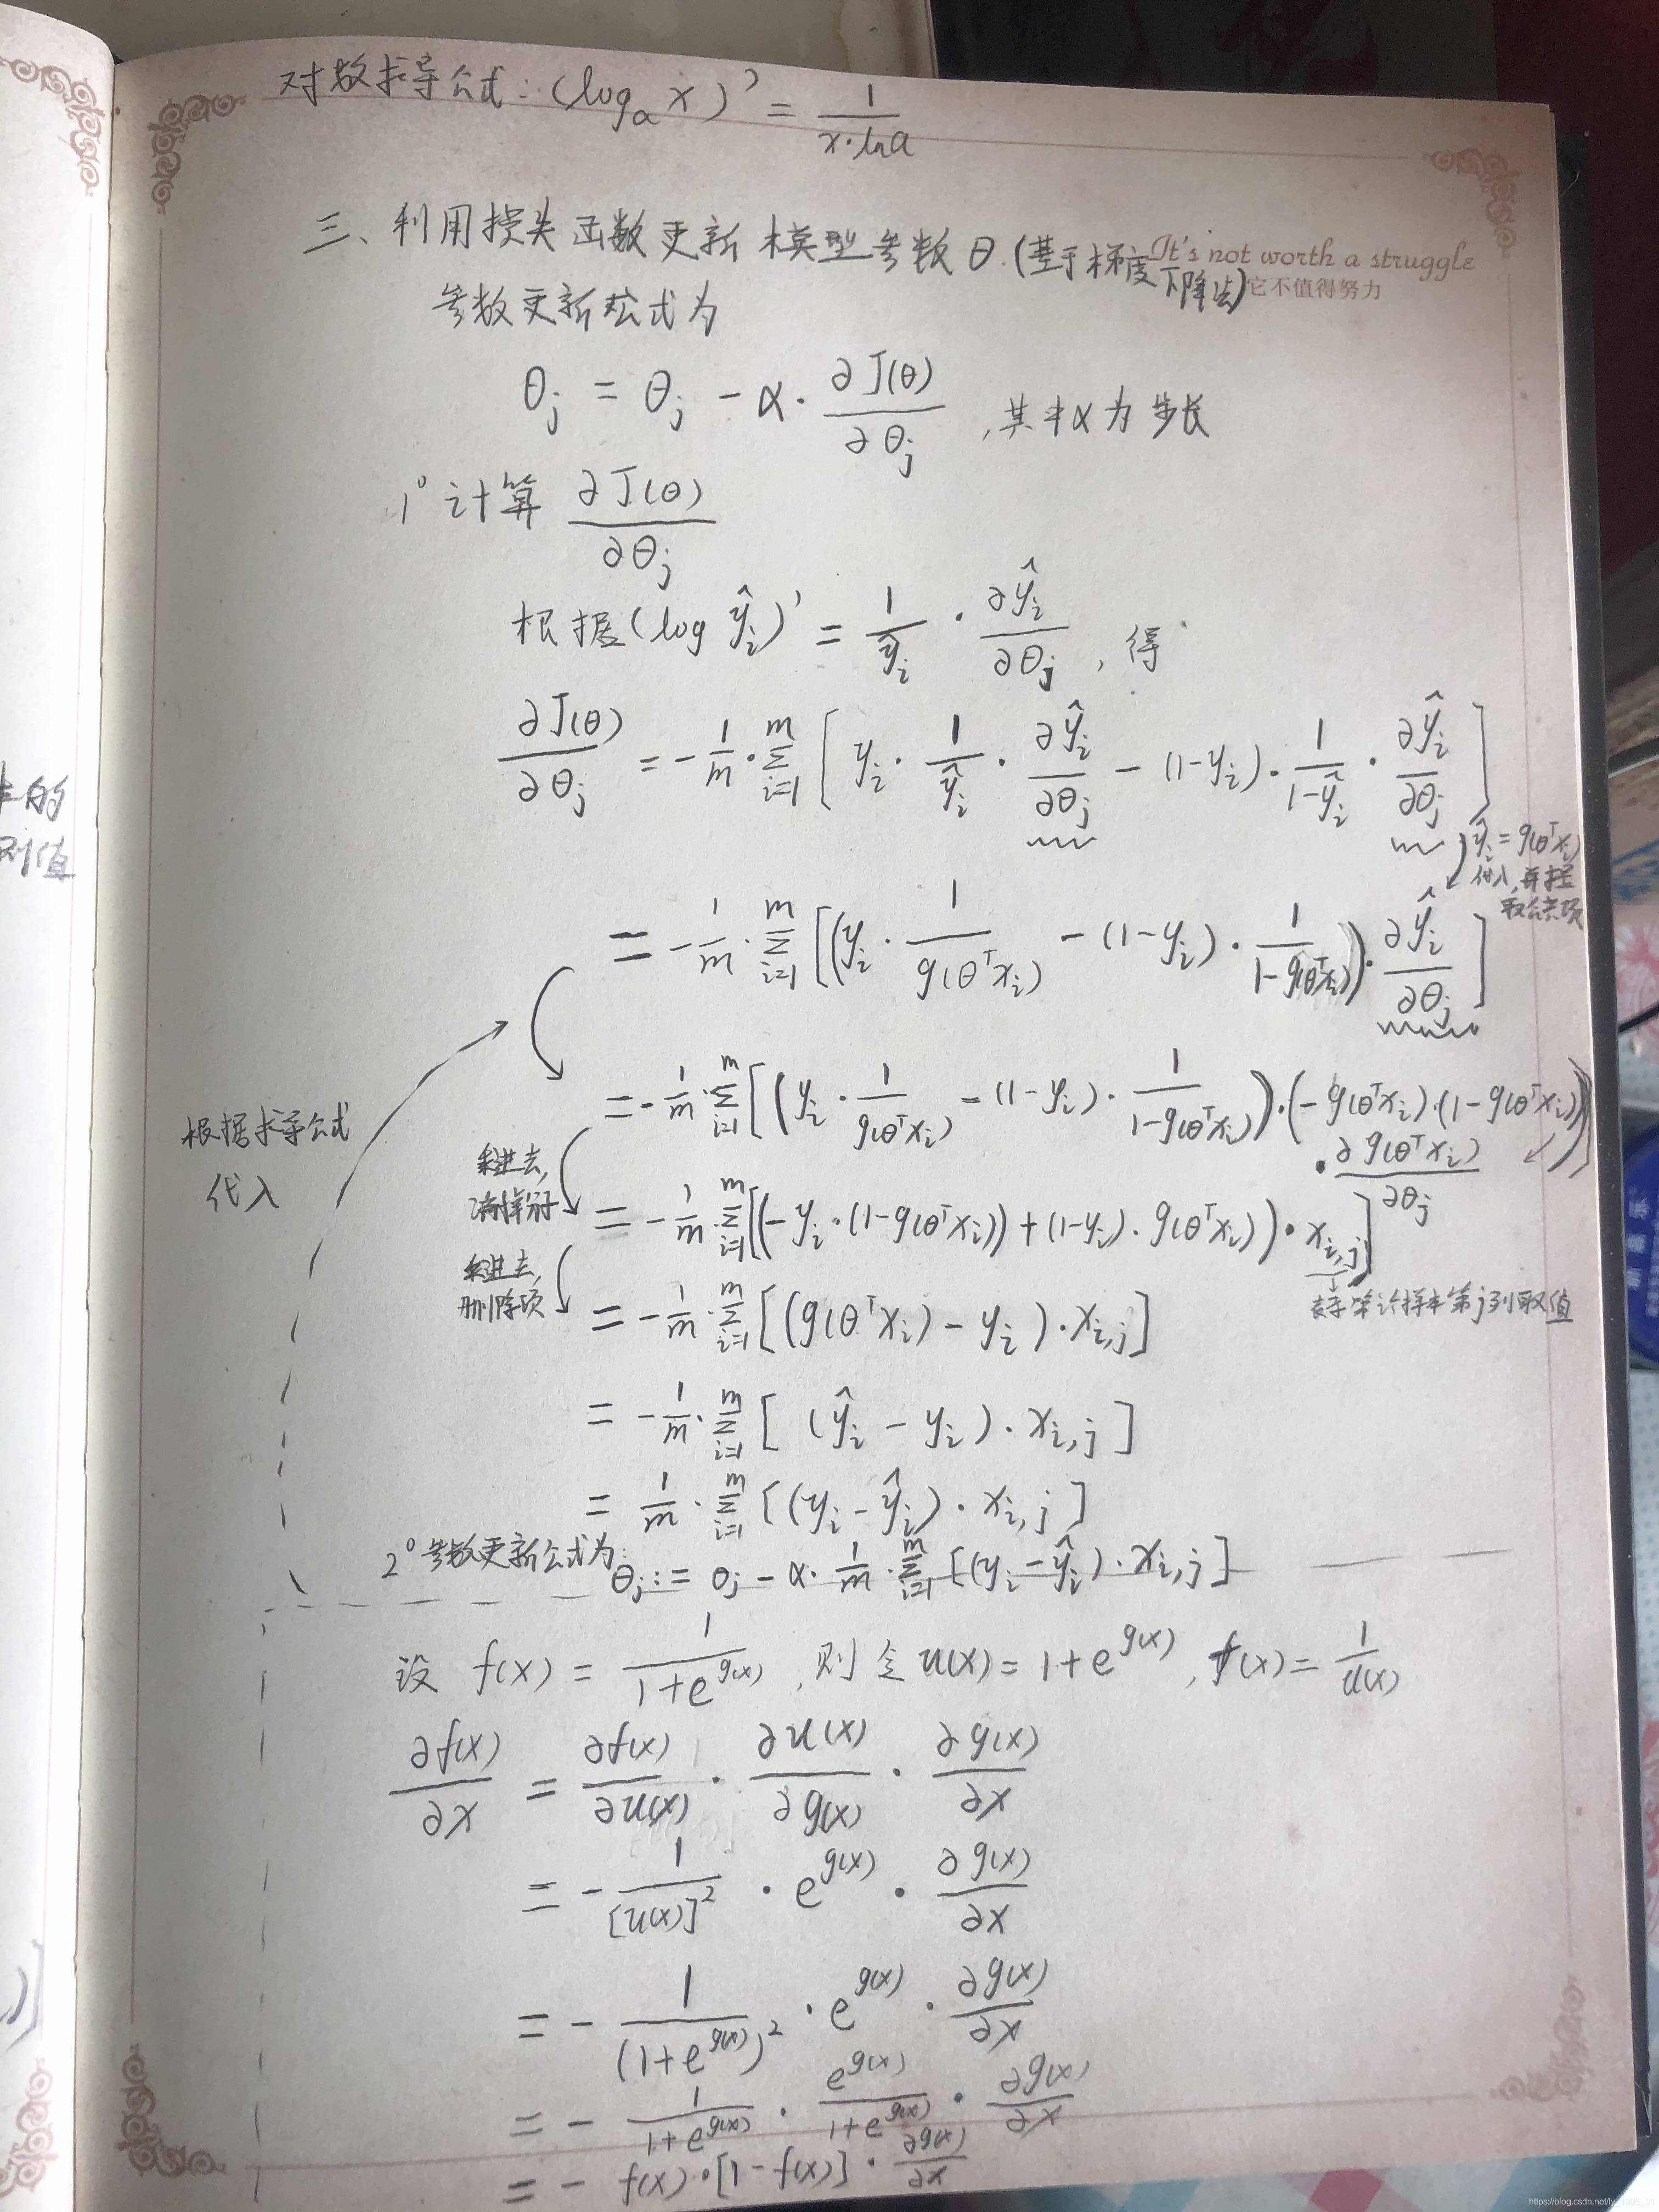 对数求导公式: (logₐx)' = 1/(x·lna)
三、利用损失函数更新模型参数θ.(基于梯度下降法)
It's not worth a struggle
它不值得努力
参数更新公式为
θj = θj - α·∂J(θ)/∂θj ,其中α为步长
1° 计算 ∂J(θ)/∂θj
根据(log ŷi)' = 1/ŷi · ∂ŷi/∂θj , 得
∂J(θ)/∂θj = -1/m·Σ(i=1→m)[yi·1/ŷi·∂ŷi/∂θj - (1-yi)·1/(1-ŷi)·∂ŷi/∂θj]
ŷi = g(θᵀxi)
代入,并提
取公共项
= -1/m·Σ(i=1→m)[(yi·1/g(θᵀxi) - (1-yi)·1/(1-g(θᵀxi)))·∂ŷi/∂θj]
根据求导公式
代入
= -1/m·Σ(i=1→m)[(yi·1/g(θᵀxi) - (1-yi)·1/(1-g(θᵀxi)))·(-g(θᵀxi)·(1-g(θᵀxi)))
·∂g(θᵀxi)/∂θj
乘进去,
= -1/m·Σ(i=1→m)[(-yi·(1-g(θᵀxi)) + (1-yi)·g(θᵀxi))·xi,j]
表示第i个样本第j列取值
乘进去,
删除项
= -1/m·Σ(i=1→m)[(g(θᵀxi) - yi)·xi,j]
= -1/m·Σ(i=1→m)[(ŷi - yi)·xi,j]
= 1/m·Σ(i=1→m)[(yi - ŷi)·xi,j]
2° 参数更新公式为:
θj := θj - α·1/m·Σ(i=1→m)[(yi - ŷi)·xi,j]
设 f(x) = 1/(1+e^g(x)) ,则令 u(x) = 1+e^g(x) , f(x) = 1/u(x)
∂f(x)/∂x = ∂f(x)/∂u(x) · ∂u(x)/∂g(x) · ∂g(x)/∂x
= -1/[u(x)]² · e^g(x) · ∂g(x)/∂x
= - 1/(1+e^g(x))² · e^g(x) · ∂g(x)/∂x
= - 1/(1+e^g(x)) · e^g(x)/(1+e^g(x)) · ∂g(x)/∂x
= - f(x)·[1-f(x)] · ∂g(x)/∂x